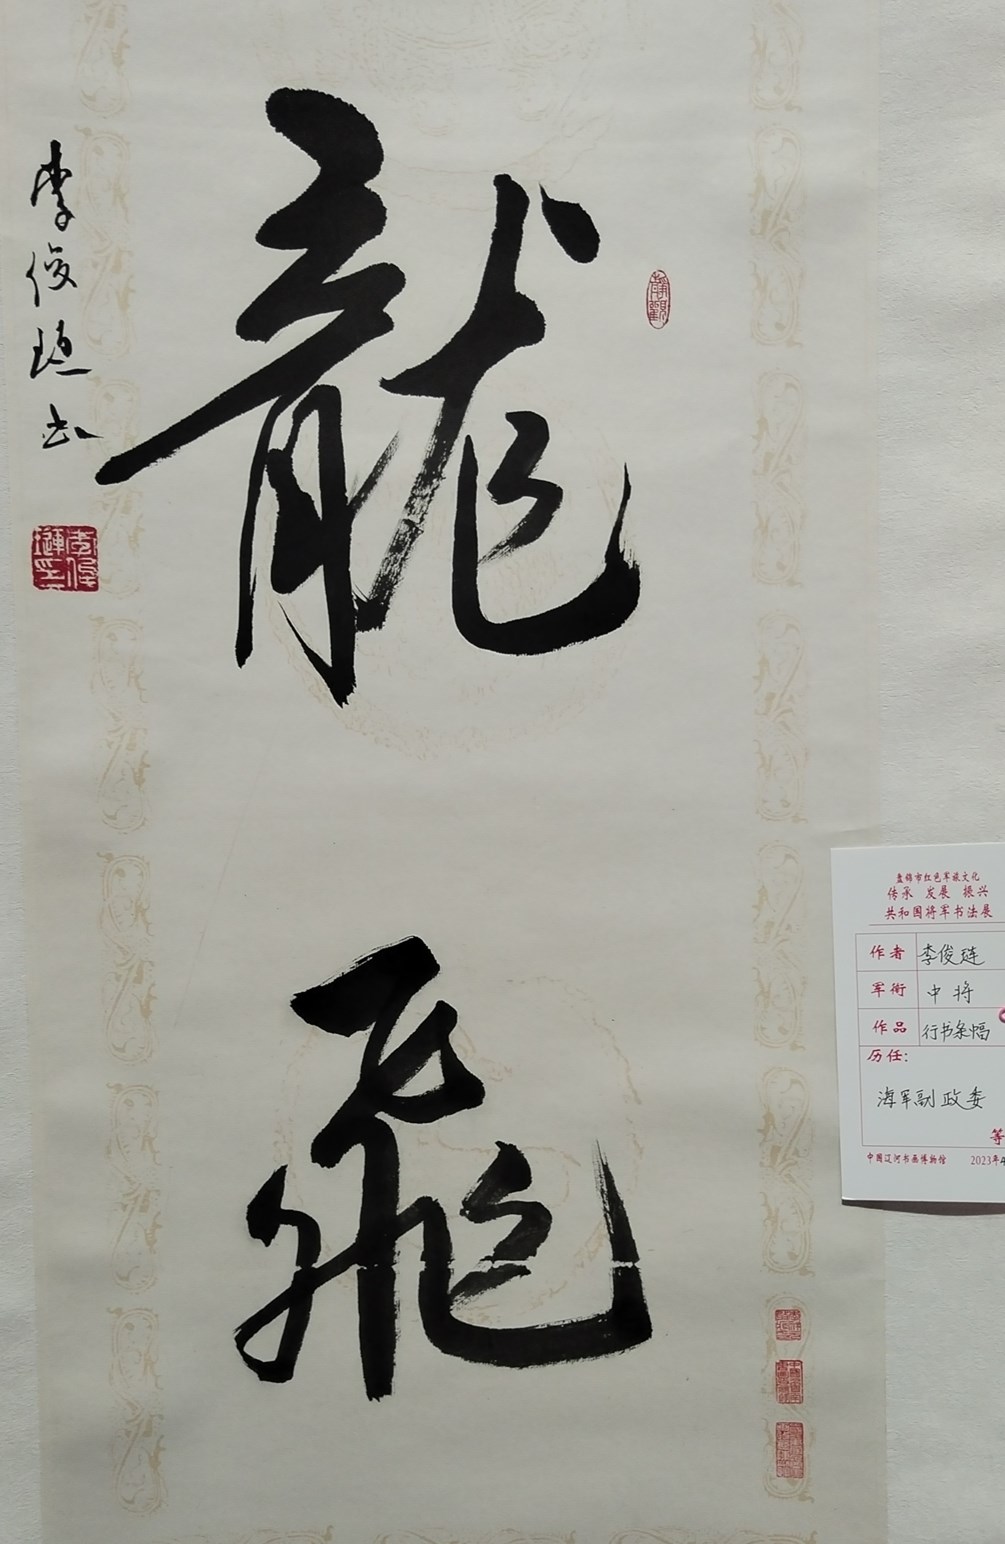 龍飛
李俊琏书
静觀
盘锦市红色军旅文化
传承 发展 振兴
共和国将军书法展
作者 李俊琏
军衔 中将
作品 行书条幅
历任：
海军副政委
等
中国辽河书画博物馆 2023年4